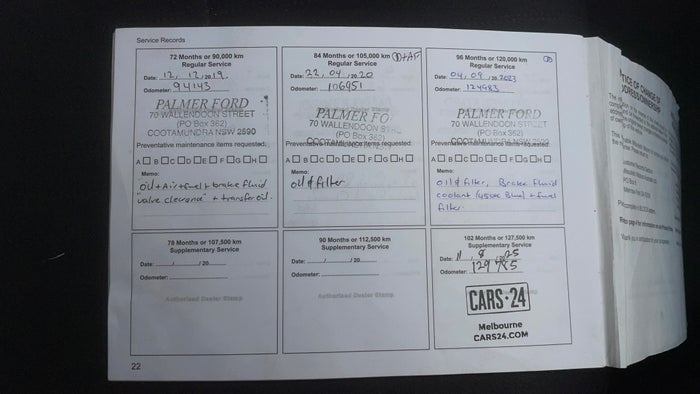 Service Records
72 Months or 90,000 km
Regular Service
Date: 12, 12, 2019.
Odometer: 94143
PALMER FORD
70 WALLENDOON STREET
(PO Box 362)
COOTAMUNDRA NSW 2590
Preventative maintenance items requested:
A B C D E F G H
Memo:
oil + Air + Fuel + brake fluid
"valve clerance" + transfer oil.
84 Months or 105,000 km
Regular Service
Date: 22, 04, 2020
Odometer: 106951
Authorised Dealer Stamp
PALMER FO
70 WALLENDOON
(PO Box 362)
Preventative maintenance items requested:
A B C D E F G H
Memo:
oil & filter
96 Months or 120,000 km
Regular Service
Date: 04, 09, 2023
Odometer: 124983
PALMER FORD
70 WALLENDOON STREET
(PO Box 362)
Preventative maintenance items requested:
A B C D E F G H
Memo:
oil & filter, Brake Fluid
coolant + fuel
filter.
78 Months or 107,500 km
Supplementary Service
Date: / /20
Odometer:
Authorised Dealer Stamp
90 Months or 112,500 km
Supplementary Service
Date: / /20
Odometer:
Authorised Dealer Stamp
102 Months or 127,500 km
Supplementary Service
Date: 11, 8, 25
Odometer: 129485
CARS·24
Melbourne
CARS24.COM
22
NOTICE OF CHANGE OF
ADDRESS/OWNERSHIP